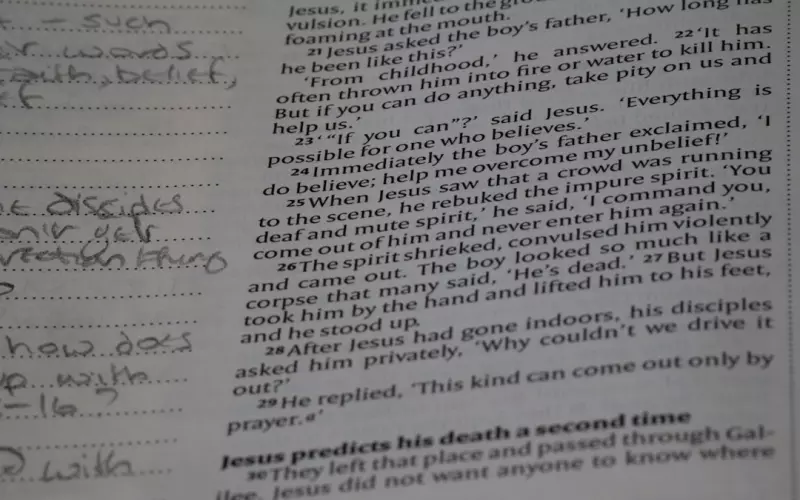 - such
words
faith, belief,
disciples
how does
with
- 16?
with
Jesus, it
vulsion. He fell to the
foaming at the mouth.
21 Jesus asked the boy's father, 'How long has
he been like this?'
'From childhood,' he answered. 22 'It has
often thrown him into fire or water to kill him.
But if you can do anything, take pity on us and
help us.'
23 '"If you can"?' said Jesus. 'Everything is
possible for one who believes.'
24 Immediately the boy's father exclaimed, 'I
do believe; help me overcome my unbelief!'
25 When Jesus saw that a crowd was running
to the scene, he rebuked the impure spirit. 'You
deaf and mute spirit,' he said, 'I command you,
come out of him and never enter him again.'
26 The spirit shrieked, convulsed him violently
and came out. The boy looked so much like a
corpse that many said, 'He's dead.' 27 But Jesus
took him by the hand and lifted him to his feet,
and he stood up.
28 After Jesus had gone indoors, his disciples
asked him privately, 'Why couldn't we drive it
out?'
29 He replied, 'This kind can come out only by
prayer.a'
Jesus predicts his death a second time
30 They left that place and passed through Gal-
ilee. Jesus did not want anyone to know where